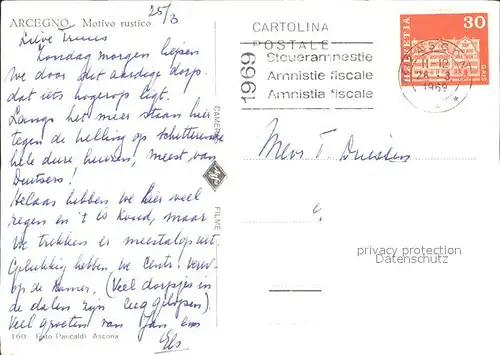 ARCEGNO Motivo rustico
25/3
Lieve Truus
Zondag morgen liepen
we door dit aardige dorp.
dat iets hogerop ligt.
Langs het meer staan hier
tegen de helling op schitterende
hele dure huizen, meest van
Duitsers!
Helaas hebben we hier veel
regen en 't is koud, maar
We trekken er meestal op uit.
Gelukkig hebben we centr. verw.
op de kamer. (Veel dorpjes in
de dalen zijn leeggelopen)
Veel groeten van Jan en
Els
160 Foto Pancaldi Ascona
CAMERE
FILME
CARTOLINA
POSTALE
1969
Steueramnestie
Amnistie fiscale
Amnistia fiscale
HELVETIA
30
1969
Mevr T Driessen
privacy protection
Datenschutz